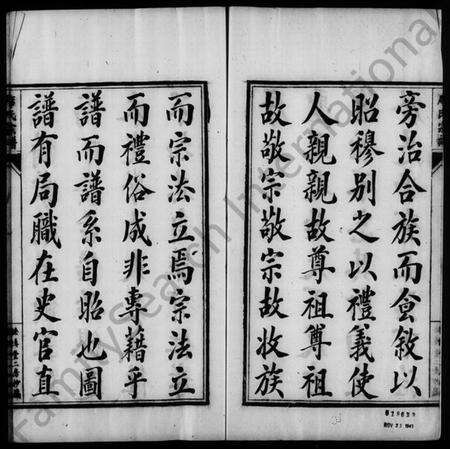 旁治合族而會敘以
昭穆別之以禮義使
人親親故尊祖尊祖
故敬宗敬宗故收族
而宗法立焉宗法立
而禮俗成非專藉乎
譜而譜系自昭也圖
譜有局職在史官直
FamilySearch International
NOV 23 1943